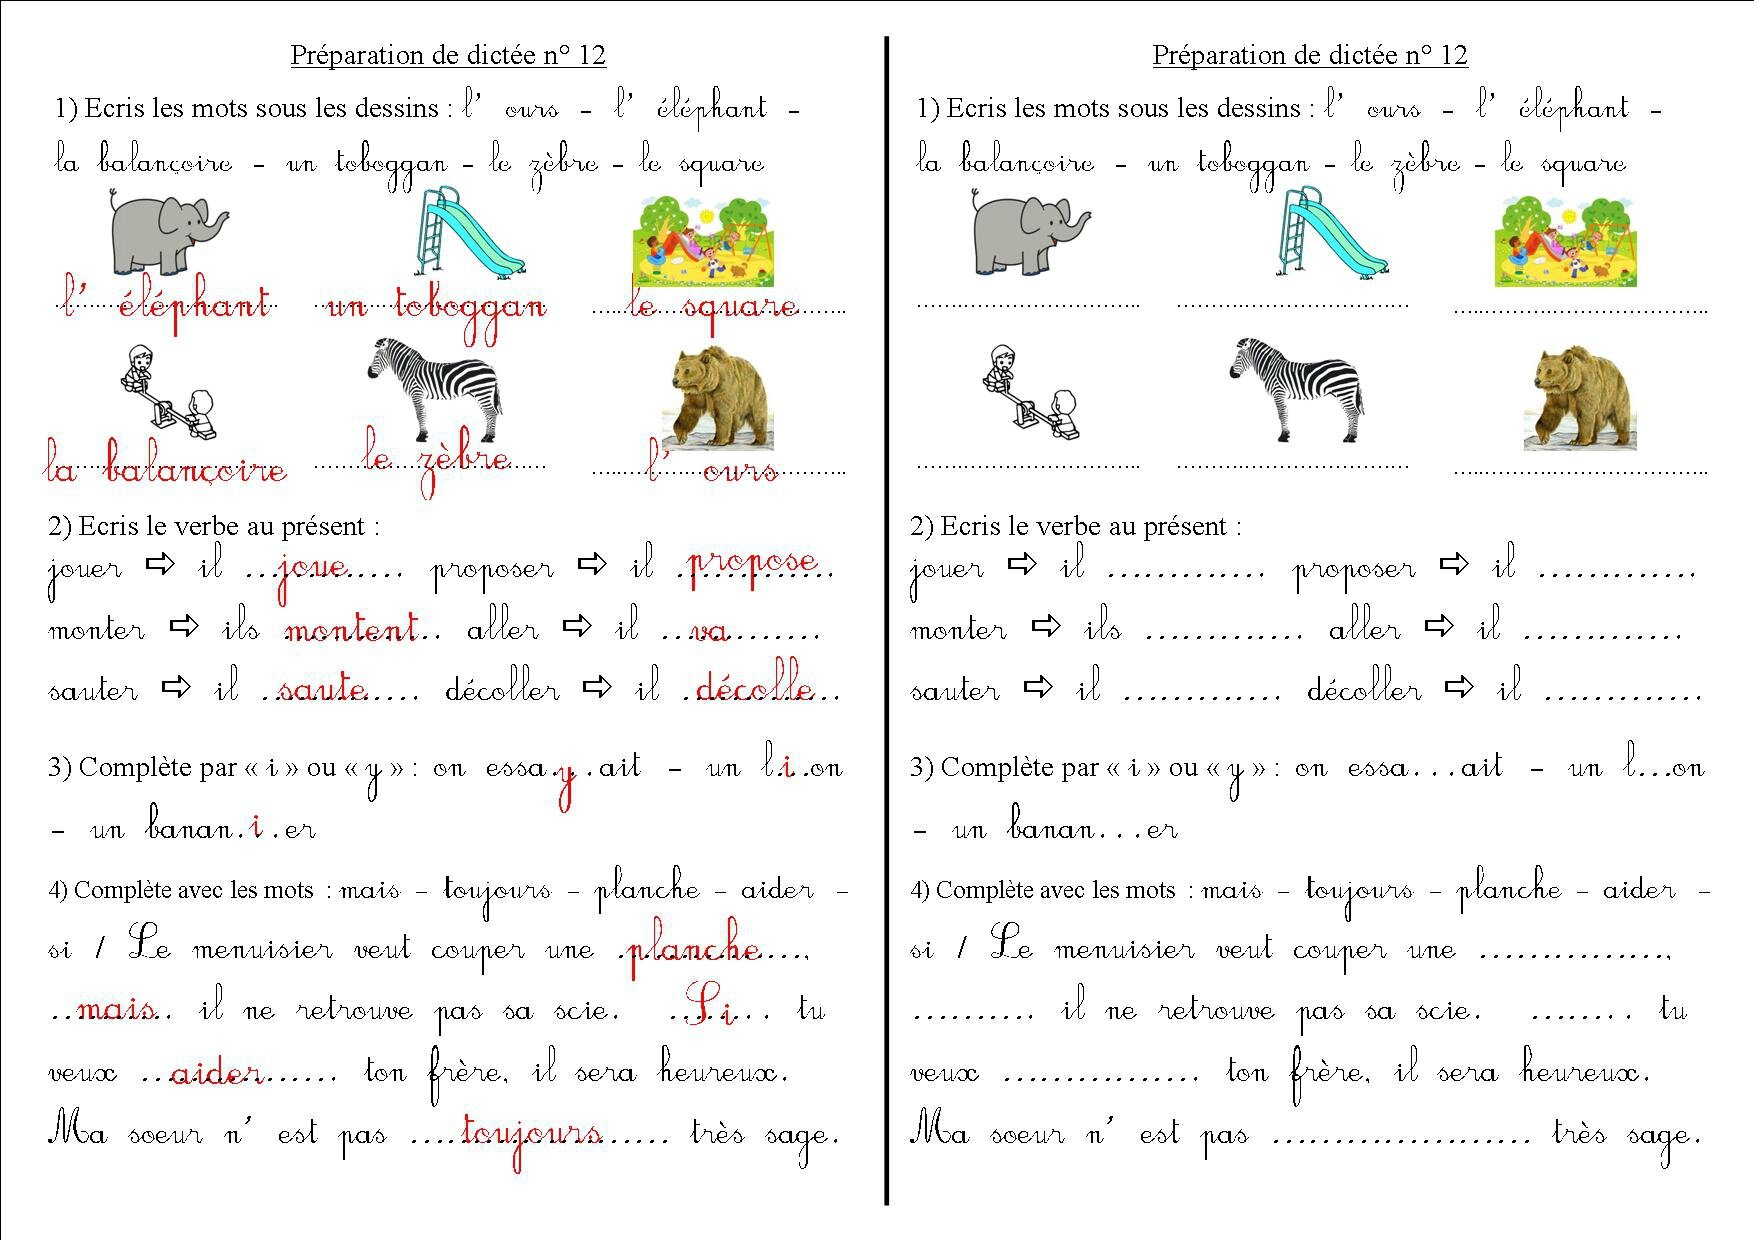 Préparation de dictée n° 12
1) Ecris les mots sous les dessins : l' ours - l' éléphant -
la balançoire - un toboggan - le zèbre - le square
l' éléphant un toboggan le square
la balançoire le zèbre l' ours
2) Ecris le verbe au présent :
jouer ⇨ il ...joue... proposer ⇨ il ...propose...
monter ⇨ ils ...montent... aller ⇨ il ...va...
sauter ⇨ il ...saute... décoller ⇨ il ...décolle...
3) Complète par « i » ou « y » : on essa.y.ait - un l.i.on
- un banan.i.er
4) Complète avec les mots : mais - toujours - planche - aider -
si / Le menuisier veut couper une ...planche...,
...mais... il ne retrouve pas sa scie. ...Si... tu
veux ...aider... ton frère, il sera heureux.
Ma soeur n' est pas ...toujours... très sage.
Préparation de dictée n° 12
1) Ecris les mots sous les dessins : l' ours - l' éléphant -
la balançoire - un toboggan - le zèbre - le square
2) Ecris le verbe au présent :
jouer ⇨ il ............. proposer ⇨ il .............
monter ⇨ ils ............. aller ⇨ il .............
sauter ⇨ il ............. décoller ⇨ il .............
3) Complète par « i » ou « y » : on essa...ait - un l...on
- un banan...er
4) Complète avec les mots : mais - toujours - planche - aider -
si / Le menuisier veut couper une ...............,
.......... il ne retrouve pas sa scie. ........ tu
veux ................ ton frère, il sera heureux.
Ma soeur n' est pas ..................... très sage.